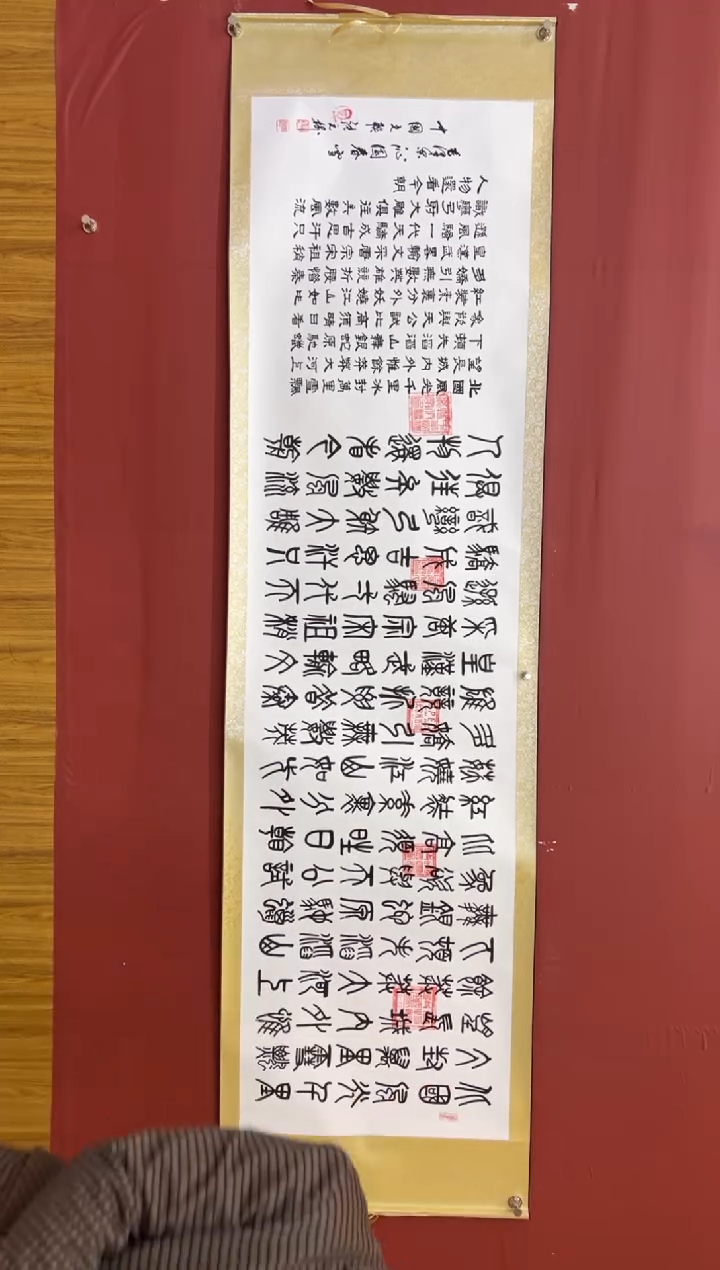 北國風光千里
冰封萬里雪飄
望長城內外惟
餘莽莽大河上
下頓失滔滔山
舞銀蛇原馳蠟
象欲與天公試
比高須晴日看
紅裝素裹分外
妖嬈江山如此
多嬌引無數英
雄競折腰惜秦
皇漢武略輸文
采唐宗宋祖稍
遜風騷一代天
驕成吉思汗只
識彎弓射大雕
俱往矣數風流
人物還看今朝
北國風光千里冰封萬里雪飄
望長城內外惟餘莽莽大河上
下頓失滔滔山舞銀蛇原馳蠟
象欲與天公試比高須晴日看
紅裝素裹分外妖嬈江山如此
多嬌引無數英雄競折腰惜秦
皇漢武略輸文采唐宗宋祖稍
遜風騷一代天驕成吉思汗只
識彎弓射大雕俱往矣數風流
人物還看今朝
毛澤東沁園春雪
中國文聯